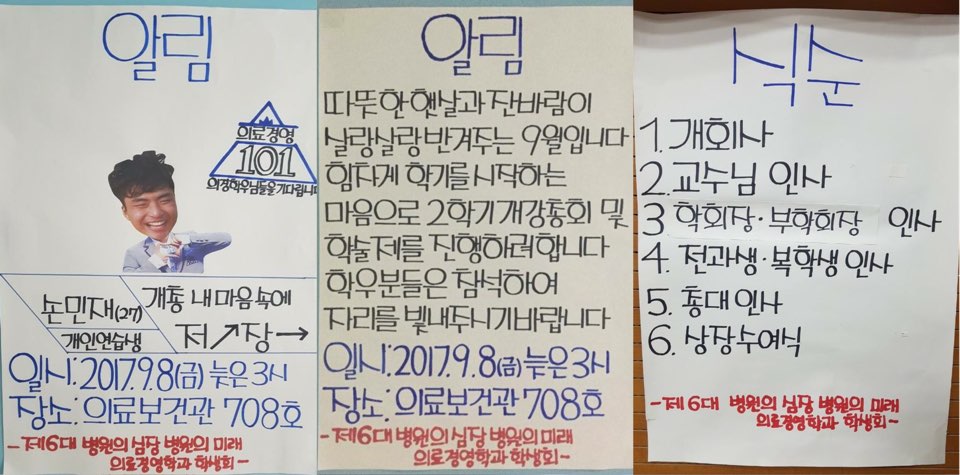 알림
의료경영
101
의경학우님들을 기다립니다
손민재(27)
개인연습생
개총 내 마음속에
저↗장→
일시:2017.9.8(금) 늦은3시
장소:의료보건관 708호
-제6대 병원의 심장 병원의 미래
의료경영학과 학생회-
알림
따뜻한 햇살과 잔바람이
살랑살랑 반겨주는 9월입니다
힘차게 학기를 시작하는
마음으로 2학기 개강총회 및
학술제를 진행하려합니다
학우분들은 참석하여
자리를 빛내주시기바랍니다
일시:2017.9.8(금) 늦은3시
장소:의료보건관 708호
-제6대 병원의 심장 병원의 미래
의료경영학과 학생회-
식순
1. 개회사
2. 교수님 인사
3 학회장·부학회장 인사
4. 전과생·복학생 인사
5. 총대 인사
6. 상장수여식
-제6대 병원의 심장 병원의 미래
의료경영학과 학생회-